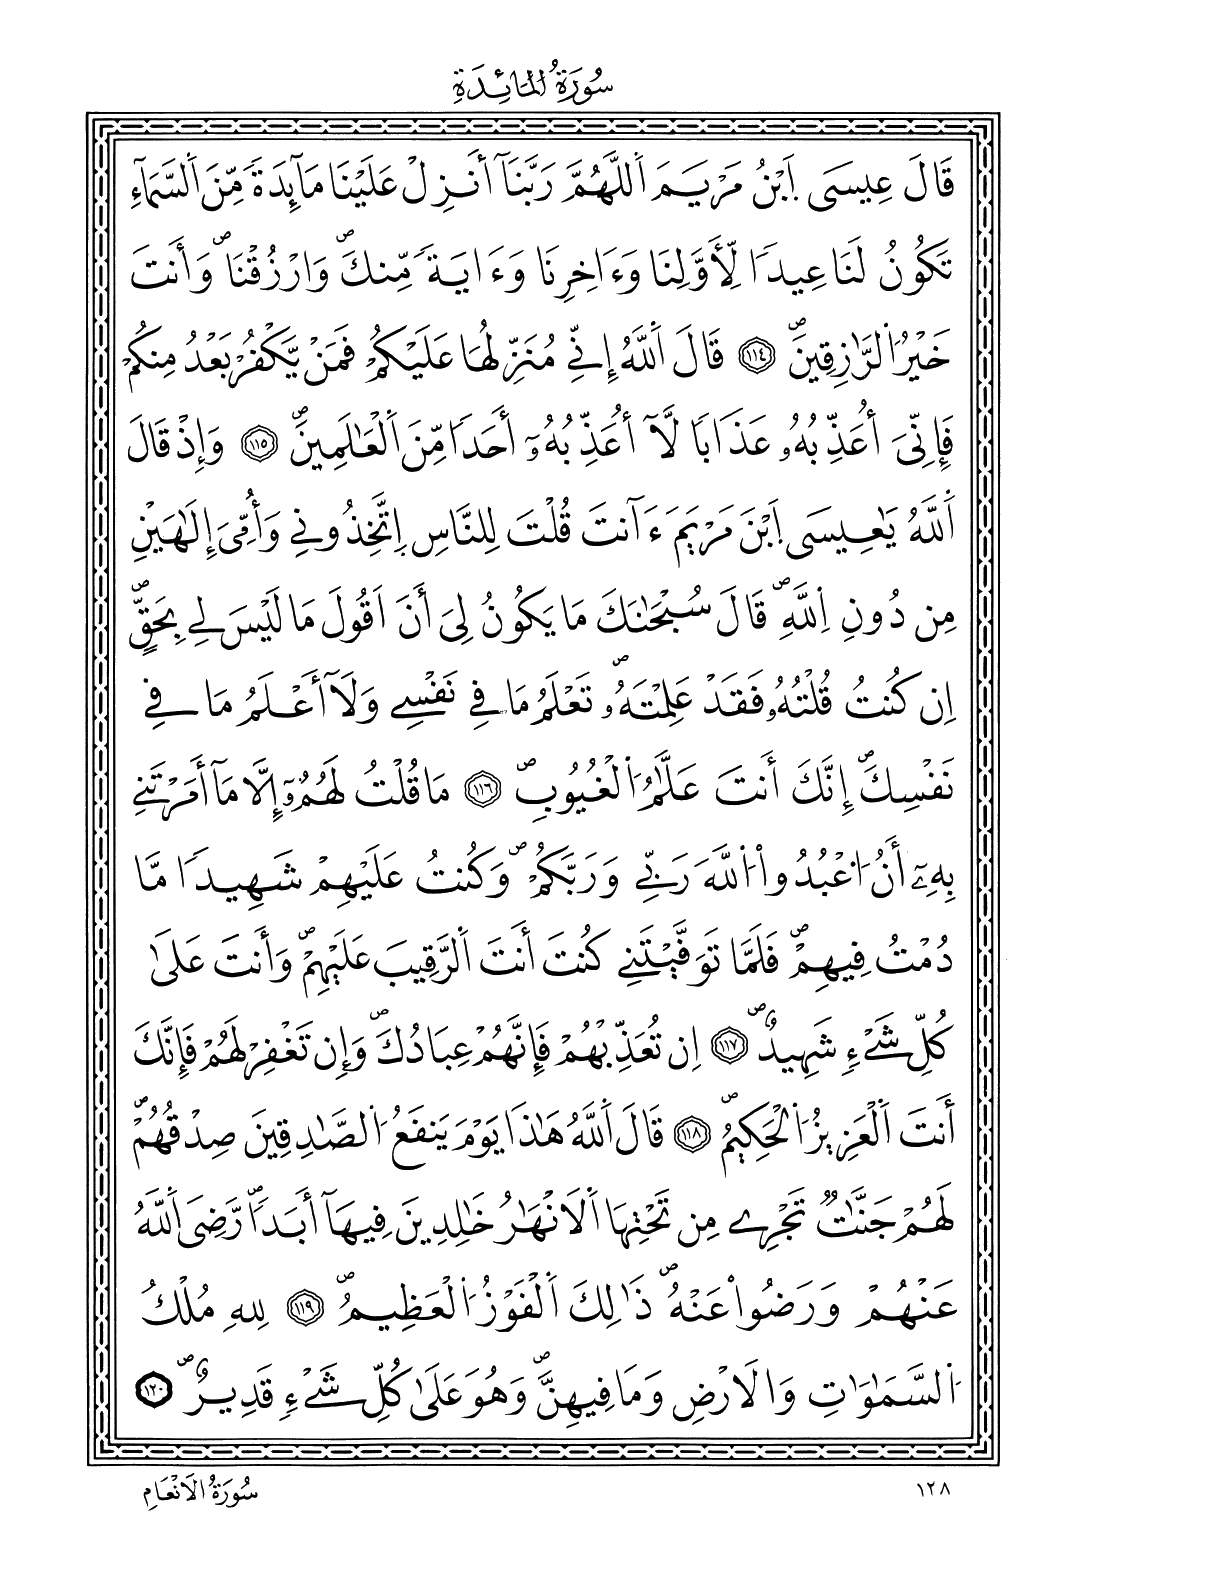 سُورَةُ الْمَائِدَةِ
قَالَ عِيسَى اَبْنُ مَرْيَمَ اَللَّهُمَّ رَبَّنَآ أَنزِلْ عَلَيْنَا مَآئِدَةً مِّنَ اَلسَّمَآءِ
تَكُونُ لَنَا عِيدًا لِّأَوَّلِنَا وَءَاخِرِنَا وَءَايَةً مِّنكَ وَارْزُقْنَا وَأَنتَ
خَيْرُ اُلرَّٰزِقِينَ ١١٤ قَالَ اَللَّهُ إِنِّے مُنَزِّلُهَا عَلَيْكُمْ فَمَنْ يَّكْفُرْ بَعْدُ مِنكُمْ
فَإِنِّىَ أُعَذِّبُهُۥ عَذَابًا لَّآ أُعَذِّبُهُۥٓ أَحَدًا مِّنَ اَلْعَٰلَمِينَ ١١٥ وَإِذْ قَالَ
اَللَّهُ يَٰعِيسَى اَبْنَ مَرْيَمَ ءَآنتَ قُلْتَ لِلنَّاسِ اِتَّخِذُونِے وَأُمِّىَ إِلَٰهَيْنِ
مِن دُونِ اِللَّهِ قَالَ سُبْحَٰنَكَ مَا يَكُونُ لِىَ أَنَ اَقُولَ مَا لَيْسَ لِے بِحَقٍّ
اِن كُنتُ قُلْتُهُۥ فَقَدْ عَلِمْتَهُۥ تَعْلَمُ مَا فِے نَفْسِے وَلَآ أَعْلَمُ مَا فِے
نَفْسِكَ إِنَّكَ أَنتَ عَلَّٰمُ اُلْغُيُوبِ ١١٦ مَا قُلْتُ لَهُمُۥٓ إِلَّا مَآ أَمَرْتَنِے
بِهِۦٓ أَنُ اُعْبُدُواْ اُللَّهَ رَبِّے وَرَبَّكُمْ وَكُنتُ عَلَيْهِمْ شَهِيدًا مَّا
دُمْتُ فِيهِمْ فَلَمَّا تَوَفَّيْتَنِے كُنتَ أَنتَ اَلرَّقِيبَ عَلَيْهِمْ وَأَنتَ عَلَىٰ
كُلِّ شَےْءٍ شَهِيدٌ ١١٧ اِن تُعَذِّبْهُمْ فَإِنَّهُمْ عِبَادُكَ وَإِن تَغْفِرْ لَهُمْ فَإِنَّكَ
أَنتَ اَلْعَزِيزُ اُلْحَكِيمُ ١١٨ قَالَ اَللَّهُ هَٰذَا يَوْمَ يَنفَعُ اُلصَّٰدِقِينَ صِدْقُهُمْ
لَهُمْ جَنَّٰتٌ تَجْرِے مِن تَحْتِهَا اَلَانْهَٰرُ خَٰلِدِينَ فِيهَآ أَبَدًا رَّضِىَ اَللَّهُ
عَنْهُمْ وَرَضُواْ عَنْهُ ذَٰلِكَ اَلْفَوْزُ اُلْعَظِيمُ ١١٩ لِلهِ مُلْكُ
اُلسَّمَٰوَٰتِ وَالَارْضِ وَمَا فِيهِنَّ وَهُوَ عَلَىٰ كُلِّ شَےْءٍ قَدِيرٌ ١٢٠
١٢٨
سُورَةُ الَانْعَامِ